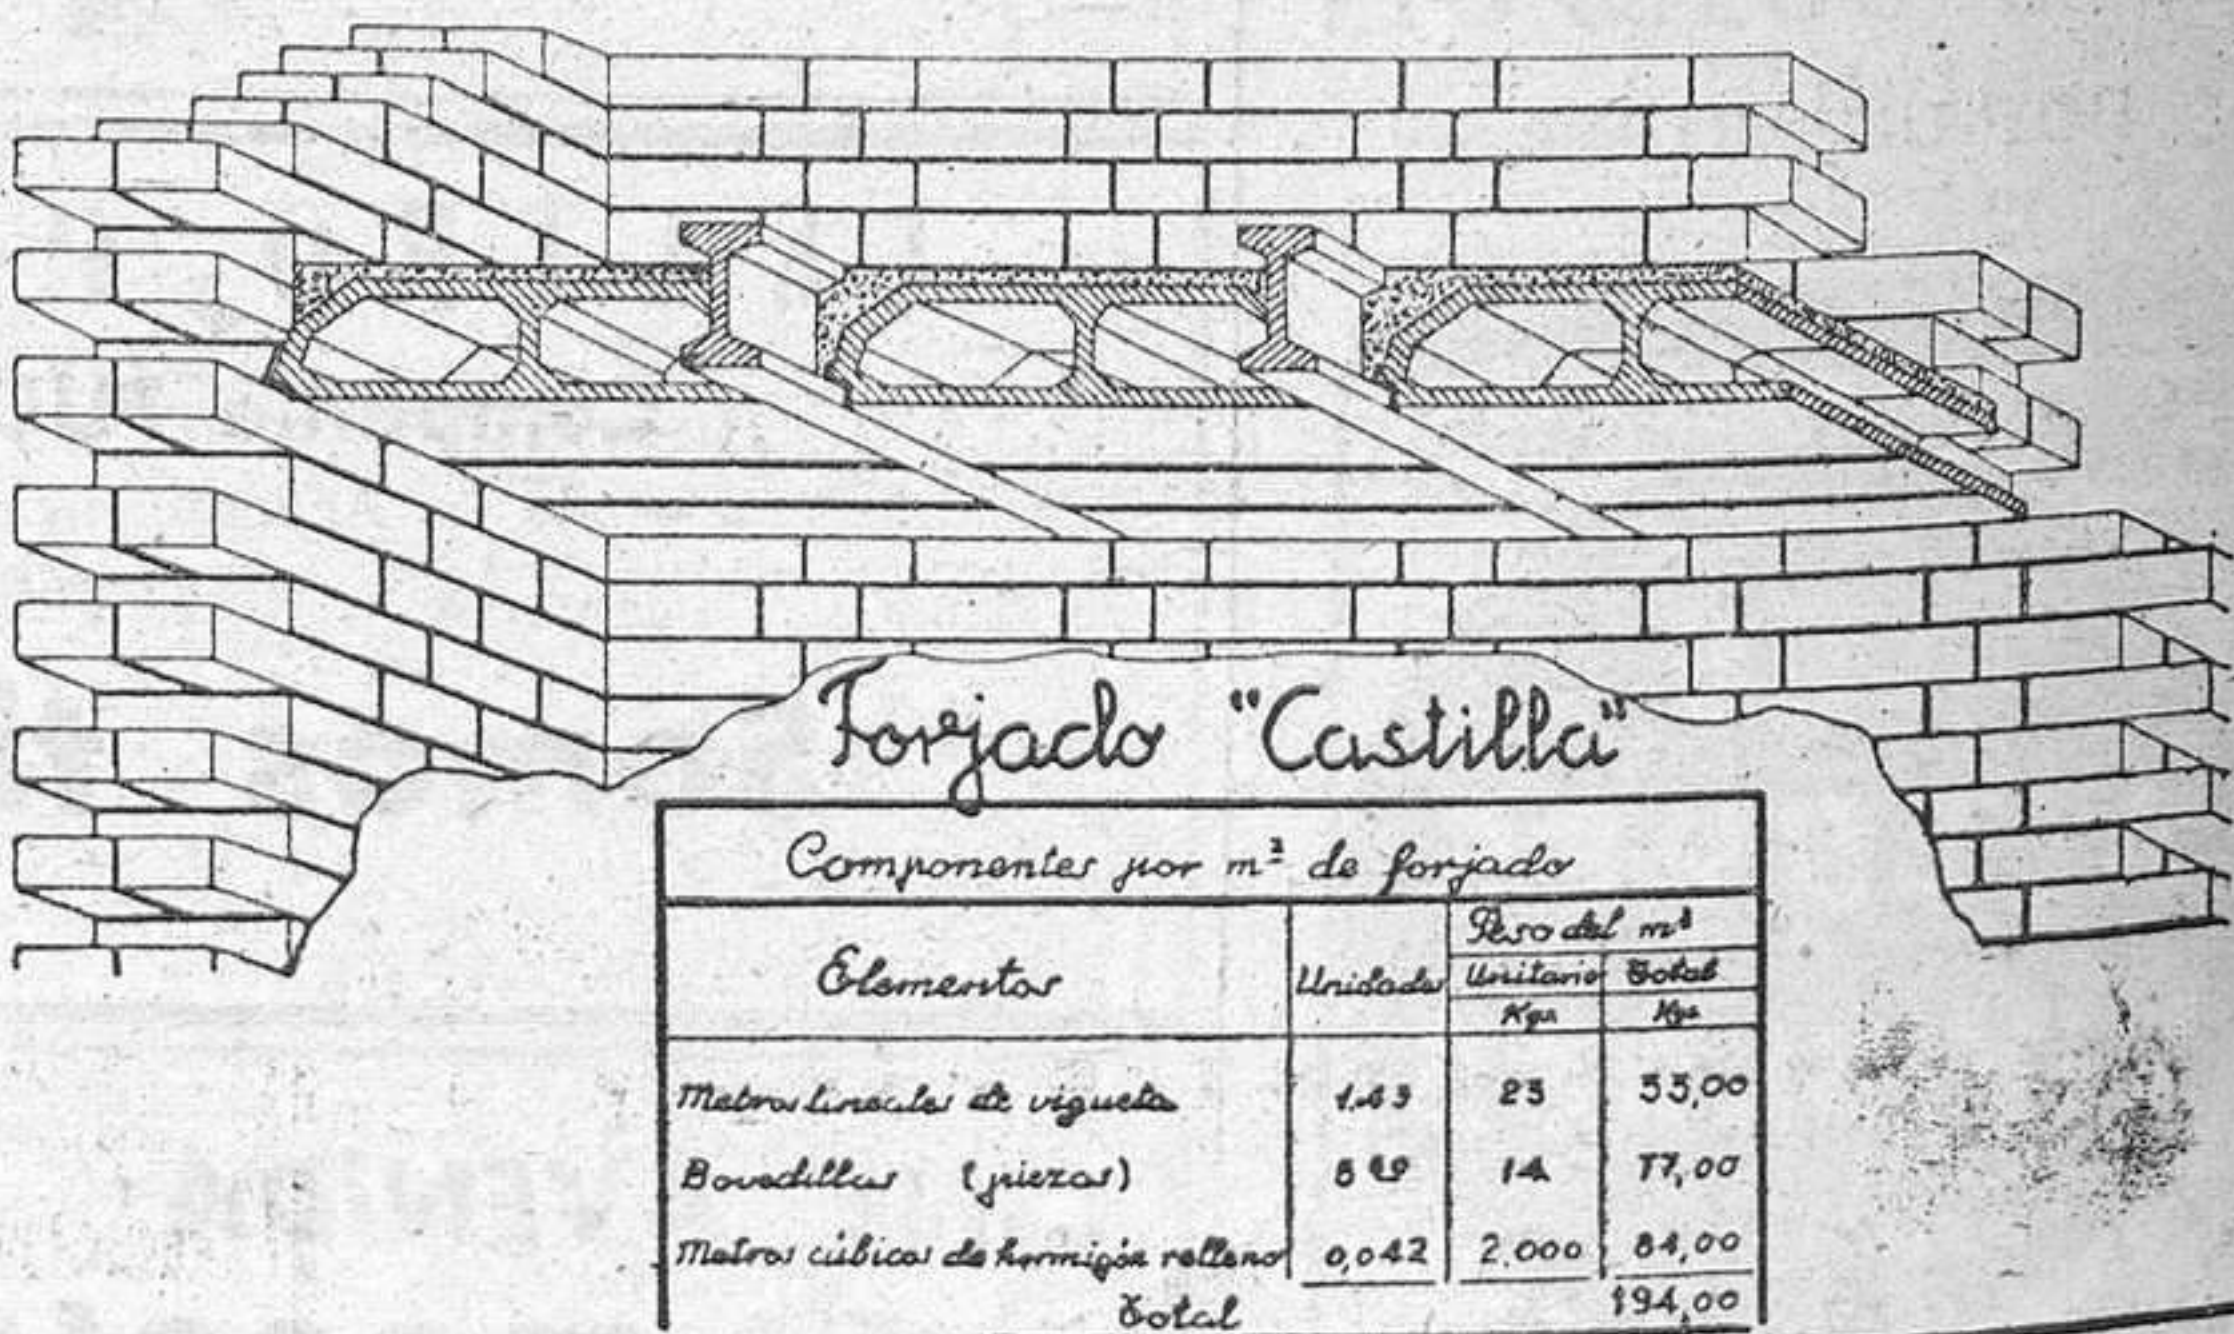 Forjado "Castilla"
Componentes por m² de forjado
Elementos Unidades Peso del m²
Unitario Total
Kgs Kgs
Metros lineales de vigueta 1.43 23 33,00
Bovedillas (piezas) 14 77,00
Metros cúbicos de hormigón relleno 0,042 2.000 84,00
Total 194,00